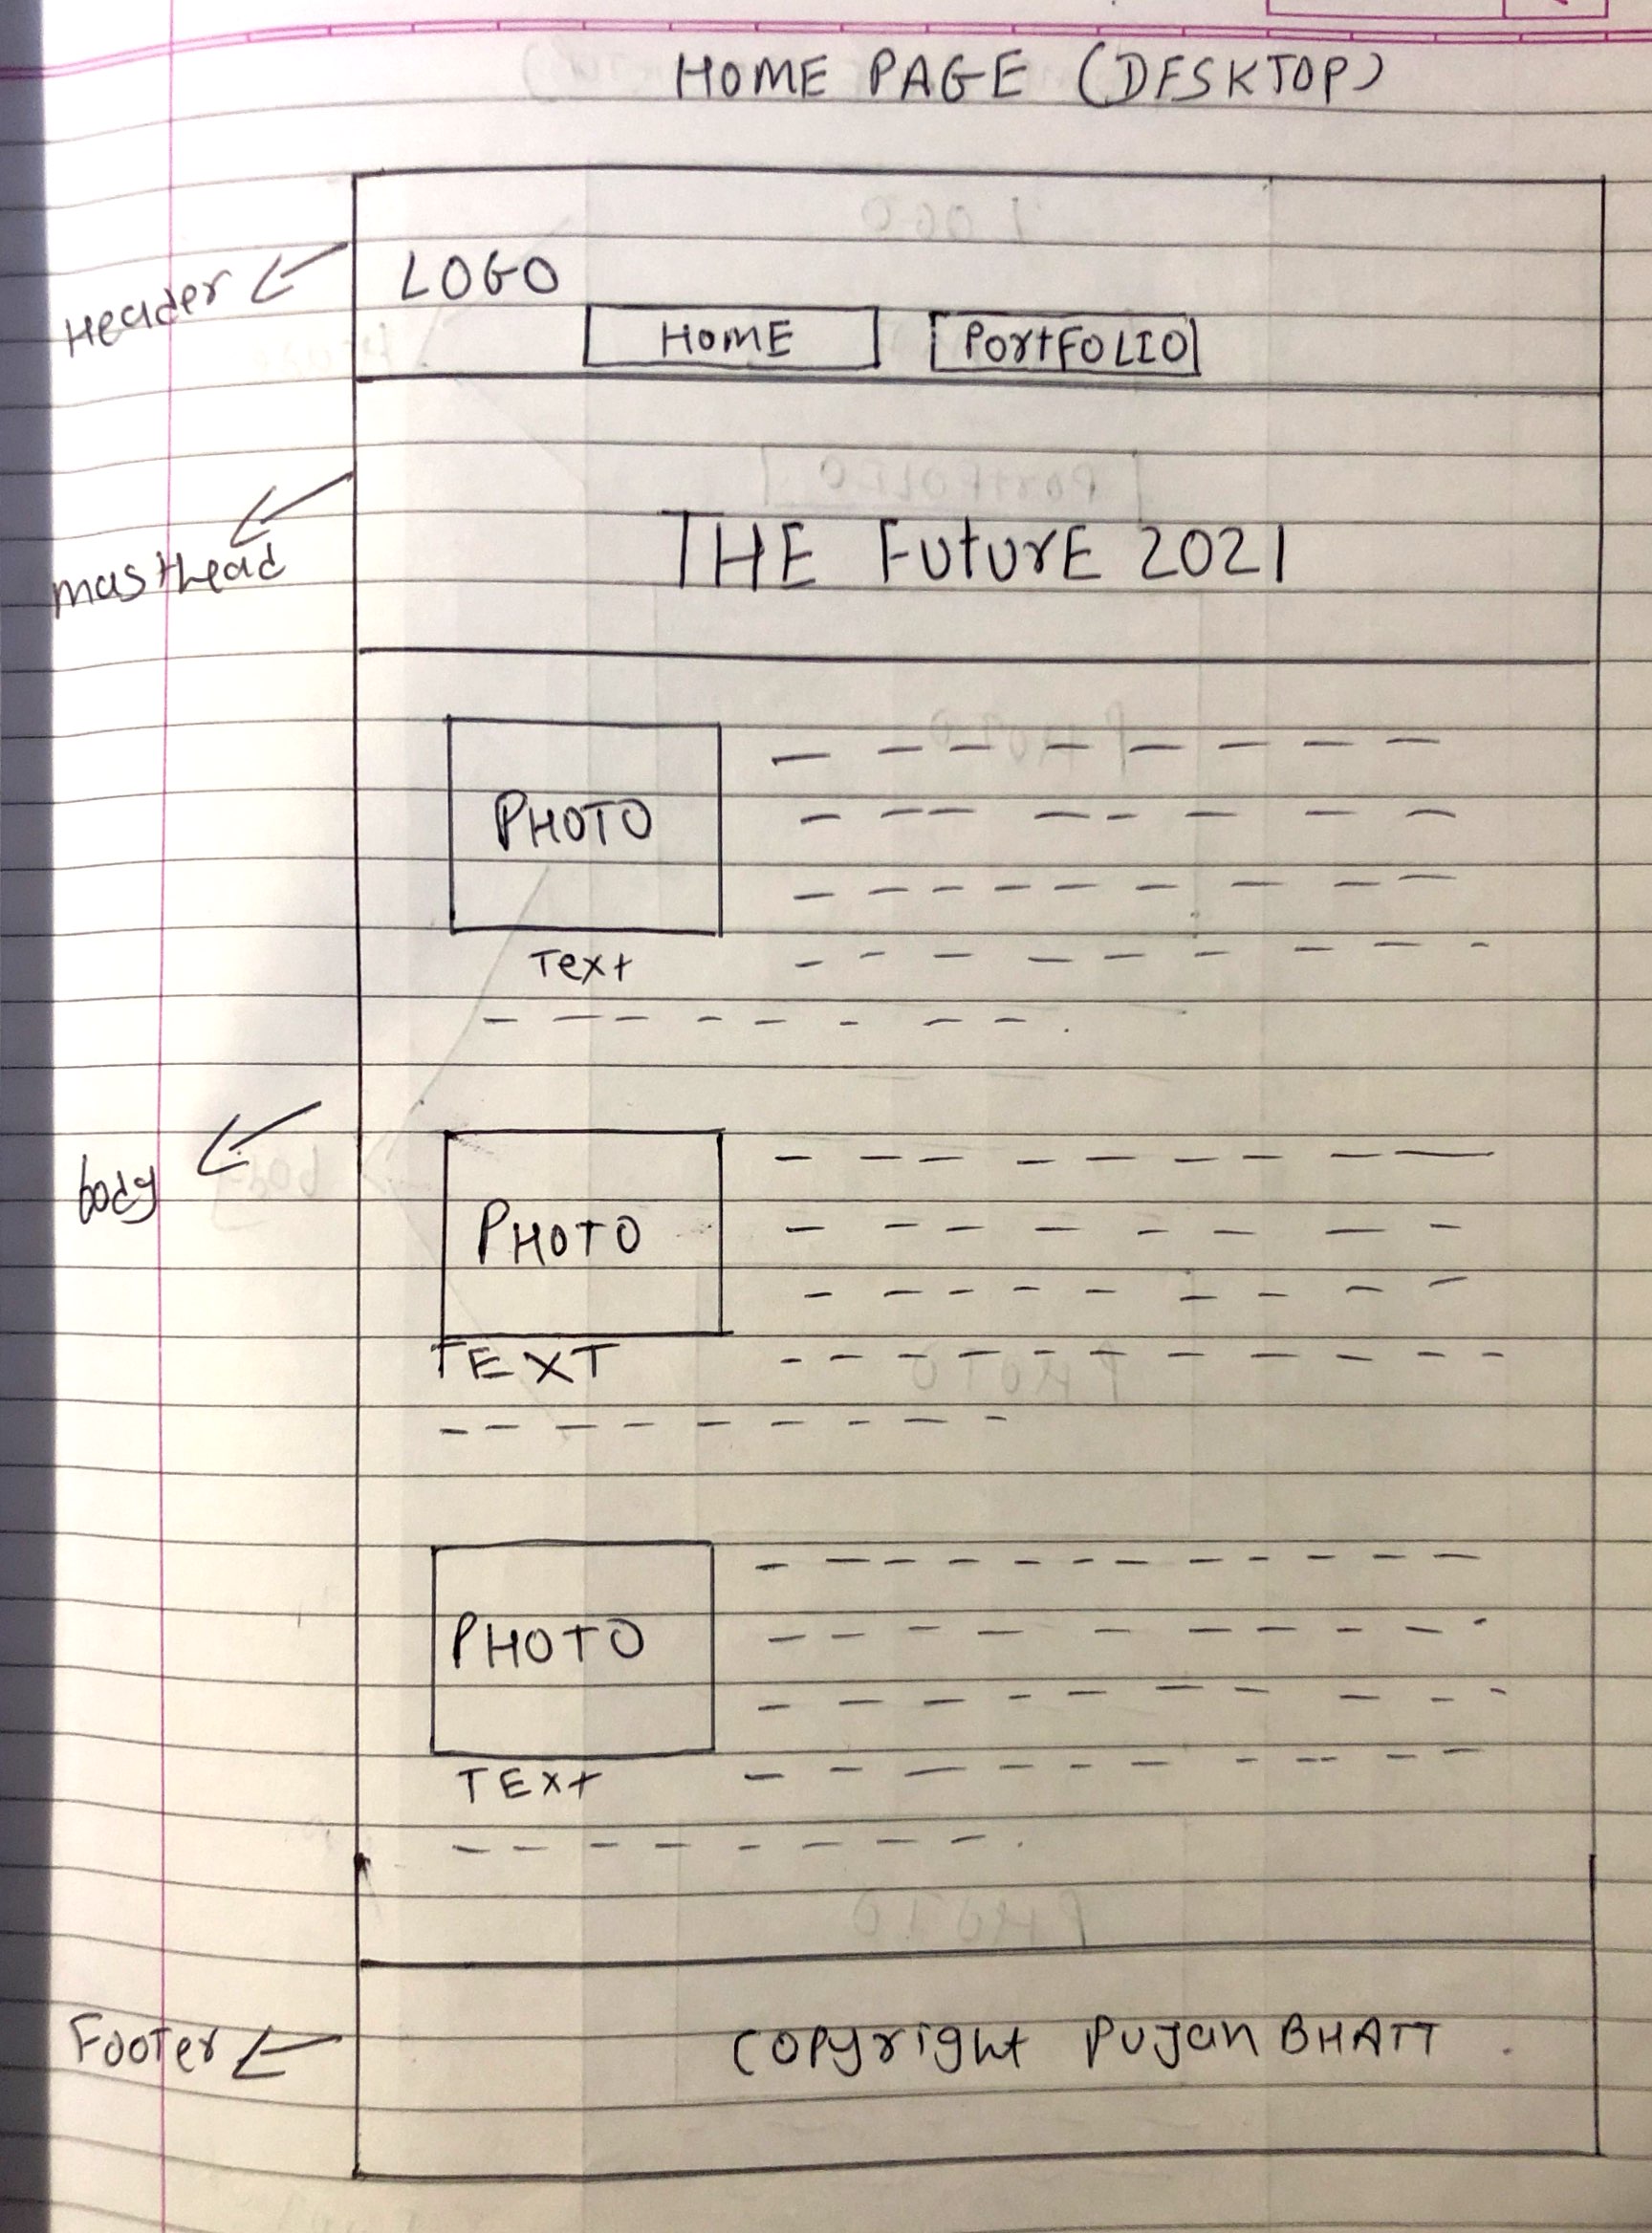 HOME PAGE (DESKTOP)
Header
LOGO
HOME PORTFOLIO
masthead
THE FUTURE 2021
PHOTO
Text
body
PHOTO
TEXT
PHOTO
TEXt
Footer
COPyright PUJan BHATT